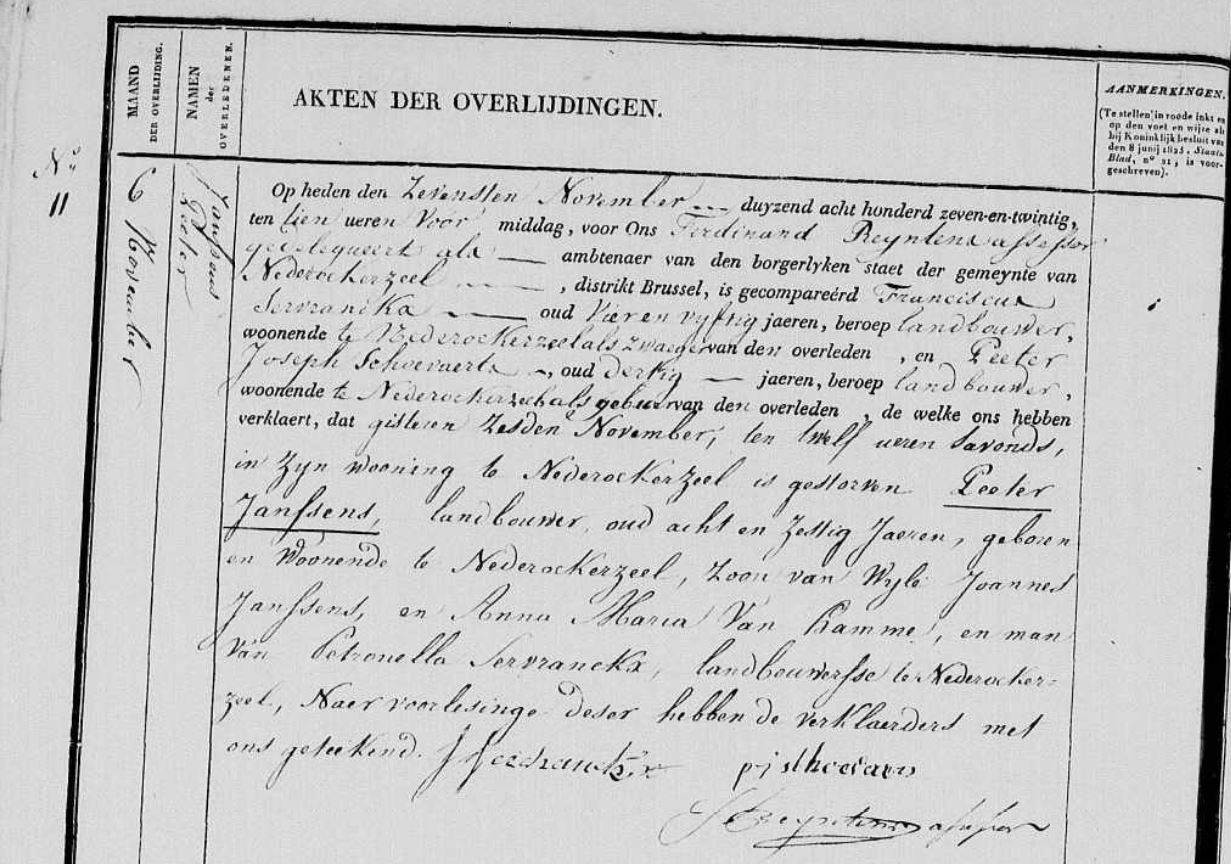 MAAND
DER OVERLIJDING.
NAMEN
der
OVERLEDENEN.
AKTEN DER OVERLIJDINGEN.
AANMERKINGEN.
(Te stellen in roode inkt en
op den voet en wijze als
bij Koninklijk besluit van
den 8 junij 1825, Staats-
Blad, nº 31, is voor-
geschreven).
Nº
11
6 November
Janssens
Peeter
Op heden den Zevensten November duyzend acht honderd zeven-en-twintig,
ten tien ueren voor middag, voor Ons Ferdinand Reyntens assessor
gedelegueert als ambtenaer van den borgerlyken staet der gemeynte van
Nederockerzeel, distrikt Brussel, is gecompareérd Franciscus
Servranckx oud vier en vyftig jaeren, beroep landbouwer,
woonende te Nederockerzeel als zwaeger van den overleden, en Peeter
Joseph Schoevaerts, oud dertig jaeren, beroep landbouwer,
woonende te Nederockerzeel als gebuer van den overleden, de welke ons hebben
verklaert, dat gisteren Zesden November, ten twelf ueren savonds,
in zyn wooning te Nederockerzeel is gestorven Peeter
Janssens, landbouwer, oud acht en Zestig Jaeren, geboren
en Woonende te Nederockerzeel, Zoon van Wyle Joannes
Janssens, en Anna Maria Van Hamme, en man
Van Petronella Servranckx, landbouwersse te Nederocker=
zeel, Naer voorlesinge deser hebben de verklaerders met
ons geteekend.
Reyntens assessor